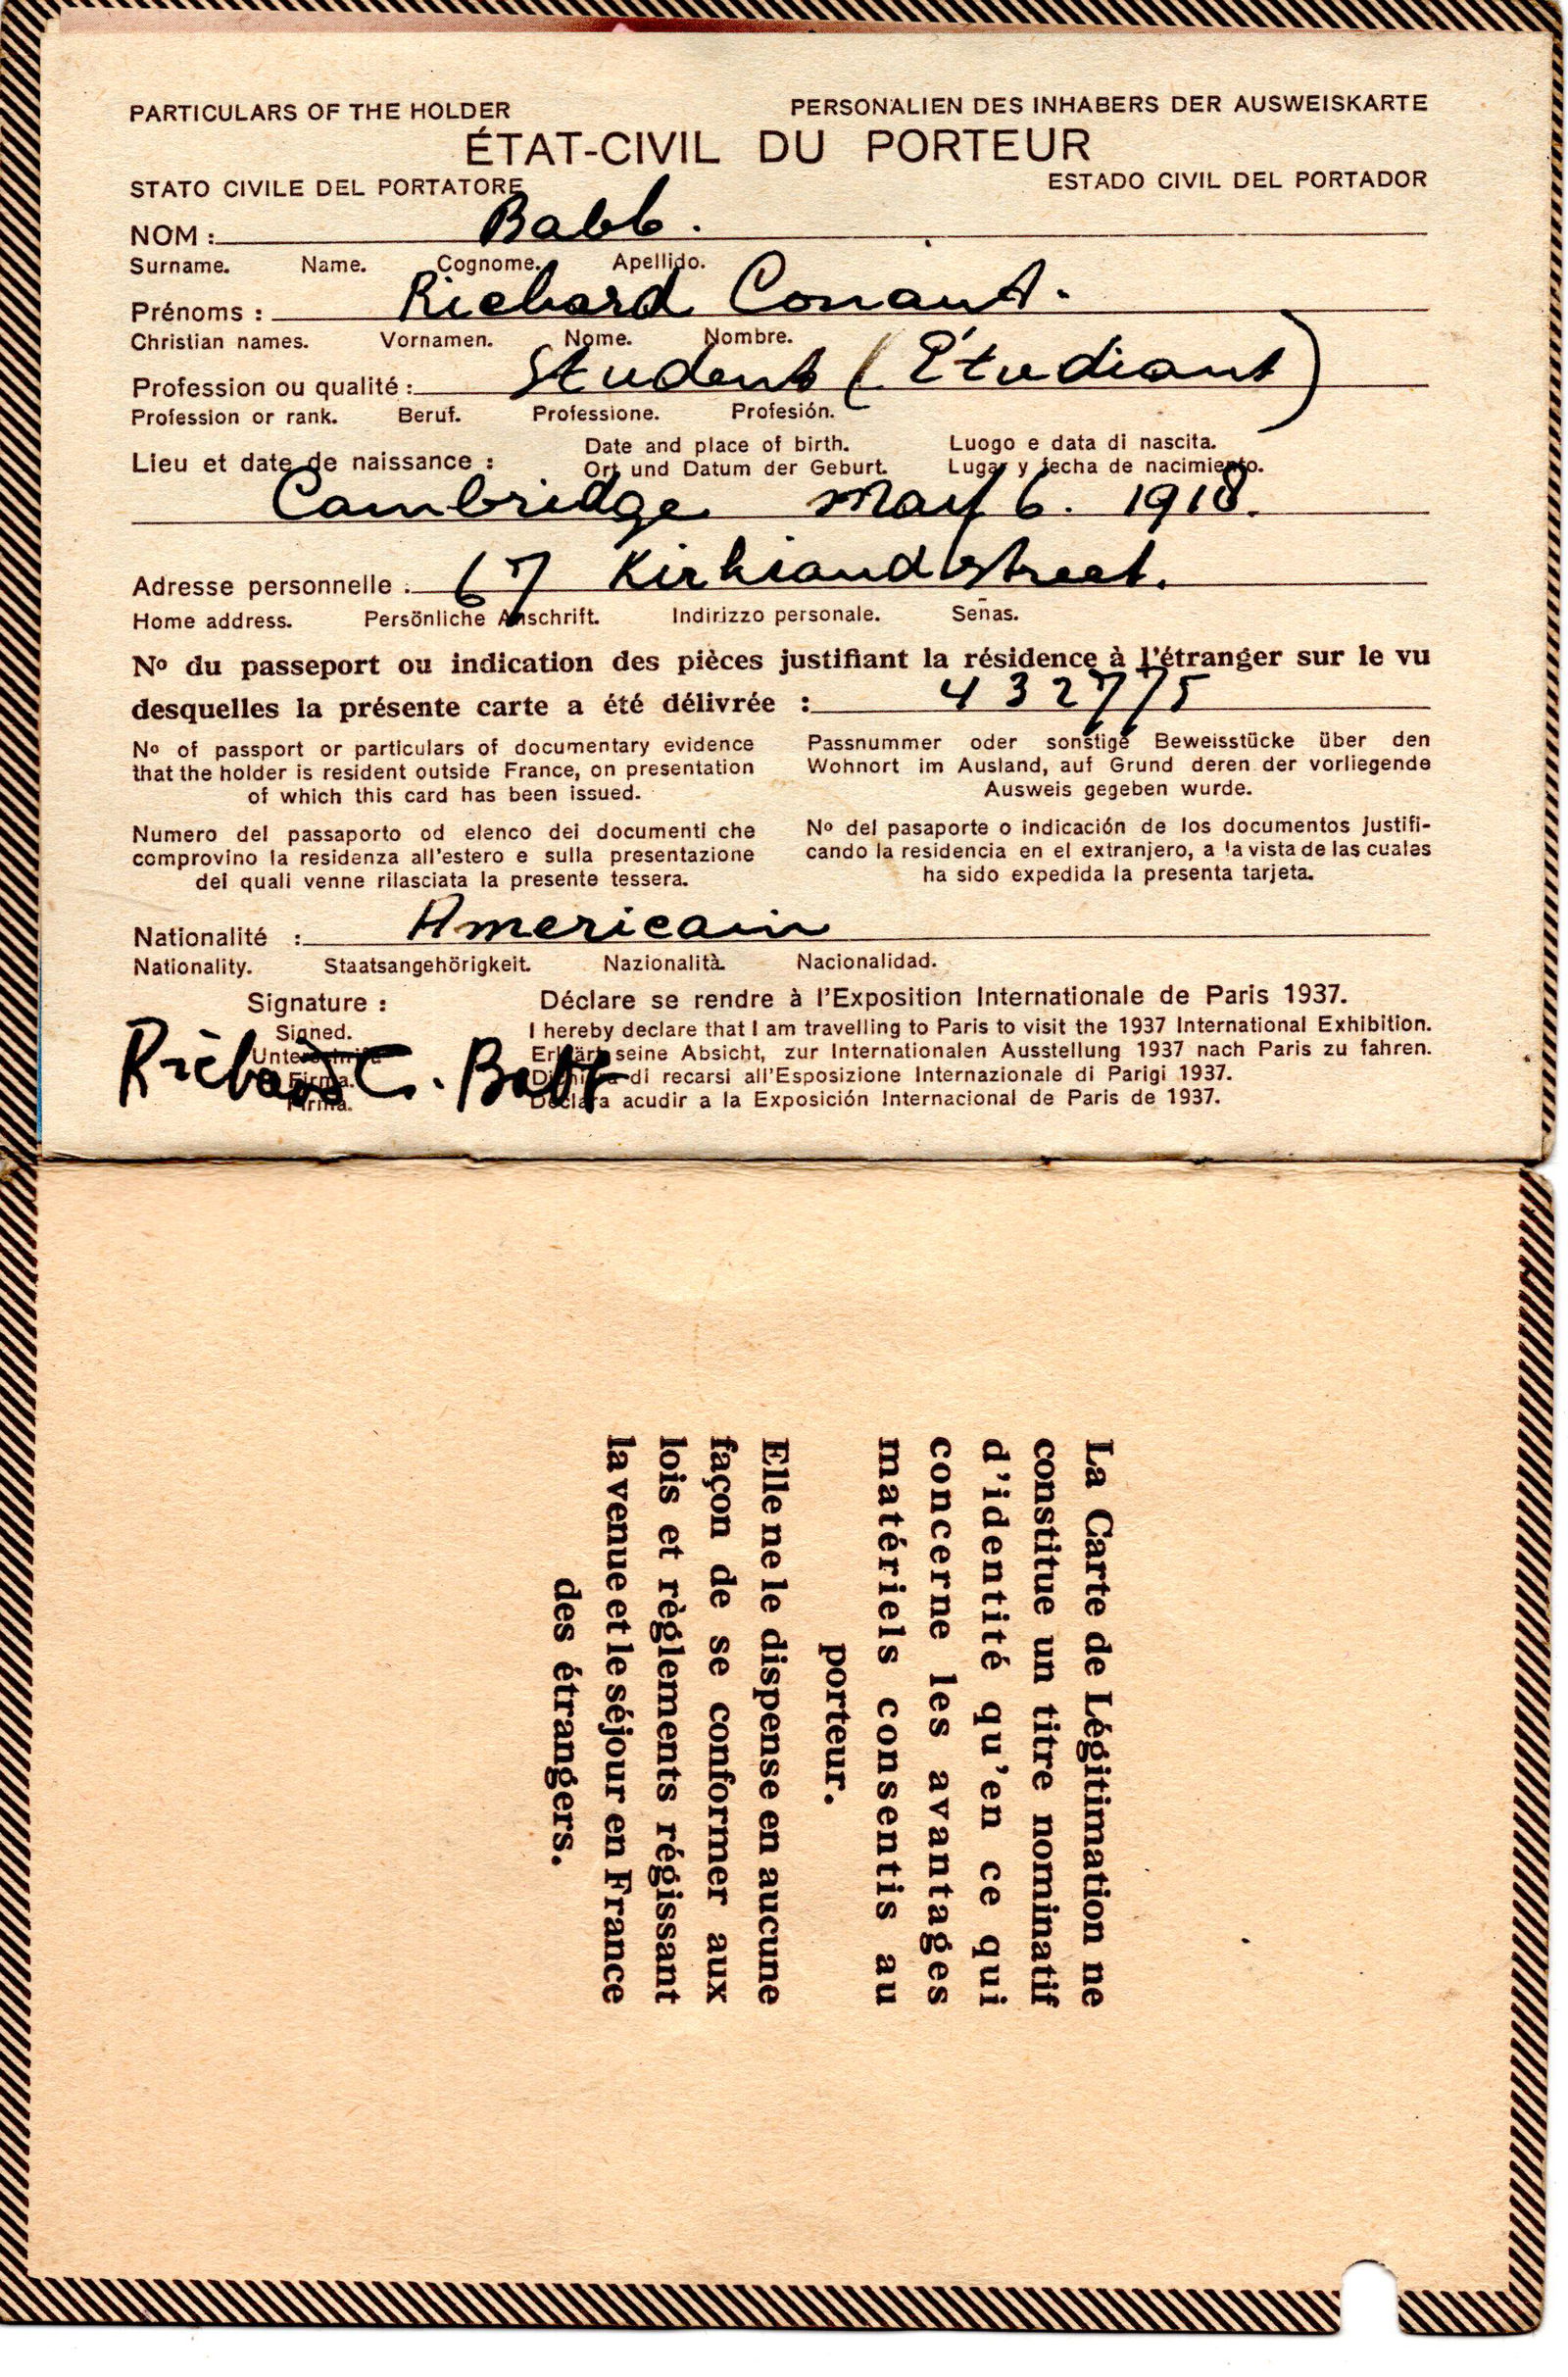 PARTICULARS OF THE HOLDER PERSONALIEN DES INHABERS DER AUSWEISKARTE
ÉTAT-CIVIL DU PORTEUR
STATO CIVILE DEL PORTATORE ESTADO CIVIL DEL PORTADOR
NOM : Babb.
Surname. Name. Cognome. Apellido.
Prénoms : Richard Conant.
Christian names. Vornamen. Nome. Nombre.
Profession ou qualité : Student (Étudiant)
Profession or rank. Beruf. Professione. Profesión.
Lieu et date de naissance : Date and place of birth. Luogo e data di nascita.
Ort und Datum der Geburt. Lugar y fecha de nacimiento.
Cambridge May 6. 1918.
Adresse personnelle : 67 Kirkland Street.
Home address. Persönliche Anschrift. Indirizzo personale. Señas.
Nº du passeport ou indication des pièces justifiant la résidence à l'étranger sur le vu
desquelles la présente carte a été délivrée : 432775
Nº of passport or particulars of documentary evidence
that the holder is resident outside France, on presentation
of which this card has been issued.
Passnummer oder sonstige Beweisstücke über den
Wohnort im Ausland, auf Grund deren der vorliegende
Ausweis gegeben wurde.
Numero del passaporto od elenco dei documenti che
comprovino la residenza all'estero e sulla presentazione
dei quali venne rilasciata la presente tessera.
Nº del pasaporte o indicación de los documentos justifi-
cando la residencia en el extranjero, a la vista de las cuales
ha sido expedida la presenta tarjeta.
Nationalité : Americain
Nationality. Staatsangehörigkeit. Nazionalità. Nacionalidad.
Signature :
Signed.
Unterschrift
Firma.
Firma.
Richard C. Babb
Déclare se rendre à l'Exposition Internationale de Paris 1937.
I hereby declare that I am travelling to Paris to visit the 1937 International Exhibition.
Erklärt seine Absicht, zur Internationalen Ausstellung 1937 nach Paris zu fahren.
Dichiara di recarsi all'Esposizione Internazionale di Parigi 1937.
Declara acudir a la Exposición Internacional de Paris de 1937.
La Carte de Légitimation ne
constitue un titre nominatif
d'identité qu'en ce qui
concerne les avantages
matériels consentis au
porteur.
Elle ne le dispense en aucune
façon de se conformer aux
lois et règlements régissant
la venue et le séjour en France
des étrangers.